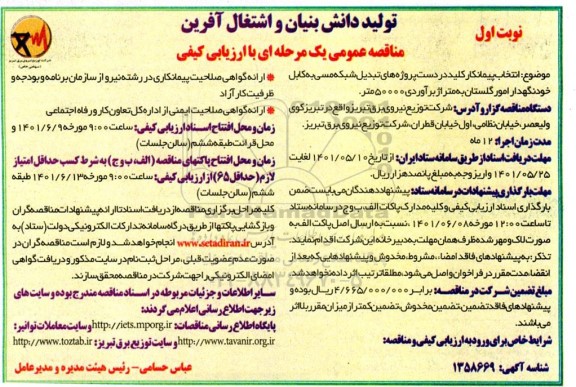 تولید دانش بنیان و اشتغال آفرین
نوبت اول
مناقصه عمومی یک مرحله ای با ارزیابی کیفی
موضوع: انتخاب پیمانکار کلید در دست پروژه های تبدیل شبکه مسی به کابل
خودنگهدار امور گلستان به متراژ برآوردی ۵۰۰۰۰ متر.
دستگاه مناقصه گزار و آدرس: شرکت توزیع نیروی برق تبریز واقع در تبریز کوی
ولیعصر، خیابان نظامی، اول خیابان قطران، شرکت توزیع نیروی برق تبریز.
مدت زمان اجرا: ۱۲ ماه
مهلت دریافت اسناد از طریق سامانه ستاد ایران: از تاریخ ۱۴۰۱/۰۵/۱۰ لغایت
۱۴۰۱/۰۵/۲۵ و واریز وجه به مبلغ پانصد هزار ریال.
مهلت بارگذاری پیشنهادات در سامانه ستاد: پیشنهاد دهندگان می بایست ضمن
بارگذاری اسناد ارزیابی کیفی و کلیه مدارک پاکات الف، ب و ج در سامانه ستاد
تا ساعت ۱۲:۰۰ مورخه ۱۴۰۱/۰۶/۰۸ نسبت به ارسال اصل پاکت الف به
صورت لاک و مهر شده ظرف همان مهلت به دبیرخانه این شرکت اقدام نمایند.
تذکر: به پیشنهادهای فاقد امضاء، مشروط، مخدوش و پیشنهادهایی که بعد از
انقضاء مدت مقرر در فراخوان واصل می شود، مطلقا ترتیب اثر داده نخواهد شد.
مبلغ تضمین شرکت در مناقصه: برابر ۴/۶۶۵/۰۰۰/۰۰۰ ریال بوده و
پیشنهادهای فاقد تضمین، تضمین مخدوش، تضمین کمتر از میزان مقرر بلااثر
می باشند.
شرایط خاص برای ورود به ارزیابی کیفی و مناقصه:
شناسه آگهی: ۱۳۵۸۶۶۹
ارائه گواهی صلاحیت پیمانکاری در رشته نیرو از سازمان برنامه و بودجه و
ظرفیت کار آزاد
ارائه گواهی صلاحیت ایمنی از اداره کل تعاون کار و رفاه اجتماعی
زمان و محل افتتاح اسناد ارزیابی کیفی: ساعت ۹:۰۰ مورخه ۱۴۰۱/۶/۹ و
محل قرائت طبقه ششم (سالن جلسات)
زمان و محل افتتاح پاکتهای مناقصه (الف، ب و ج) به شرط کسب حداقل امتیاز
لازم (حداقل ۶۵) از ارزیابی کیفی: ساعت ۹:۰۰ مورخه ۱۴۰۱/۶/۱۳ طبقه
ششم (سالن جلسات)
کلیه مراحل برگزاری مناقصه از دریافت اسناد تا ارائه پیشنهادات مناقصه گران
و بازگشایی پاکتها از طریق درگاه سامانه تدارکات الکترونیکی دولت (ستاد) به
آدرس www.setadiran.ir انجام خواهد شد و لازم است مناقصه گران در
صورت عدم عضویت قبلی، مراحل ثبت نام در سایت مذکور و دریافت گواهی
امضای الکترونیکی را جهت شرکت در مناقصه محقق سازند.
سایر اطلاعات و جزئیات مربوطه در اسناد مناقصه مندرج بوده و سایت های
زیر جهت اطلاع رسانی اعلام می گردند:
پایگاه اطلاع رسانی مناقصات: http://iets.mporg.ir وسایت معاملات توانیر:
http://www.tavanir.org.ir و سایت توزیع برق تبریز: http://www.toztab.ir
عباس حسامی - رئیس هیئت مدیره و مدیرعامل